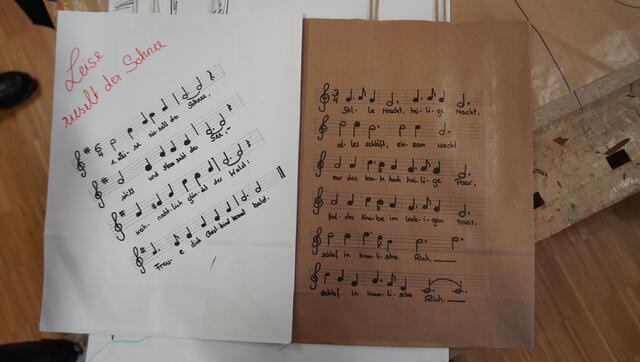 Leise
rieselt der Schnee
1. Lei - se rie-selt der Schnee,
still und starr ruht der See,
weih - nacht-lich glän-zet der Wald:
Freu - e dich Christ kind kommt bald.
Stil - le Nacht, hei-li-ge Nacht.
al-les schläft, ein-sam wacht
nur das trau-te hoch hei-li-ge Paar.
Hol-der Knabe im lock-i-gen Haar.
schlaf in himm-li-sche Ruh.
schlaf in himm-li-sche Ruh.